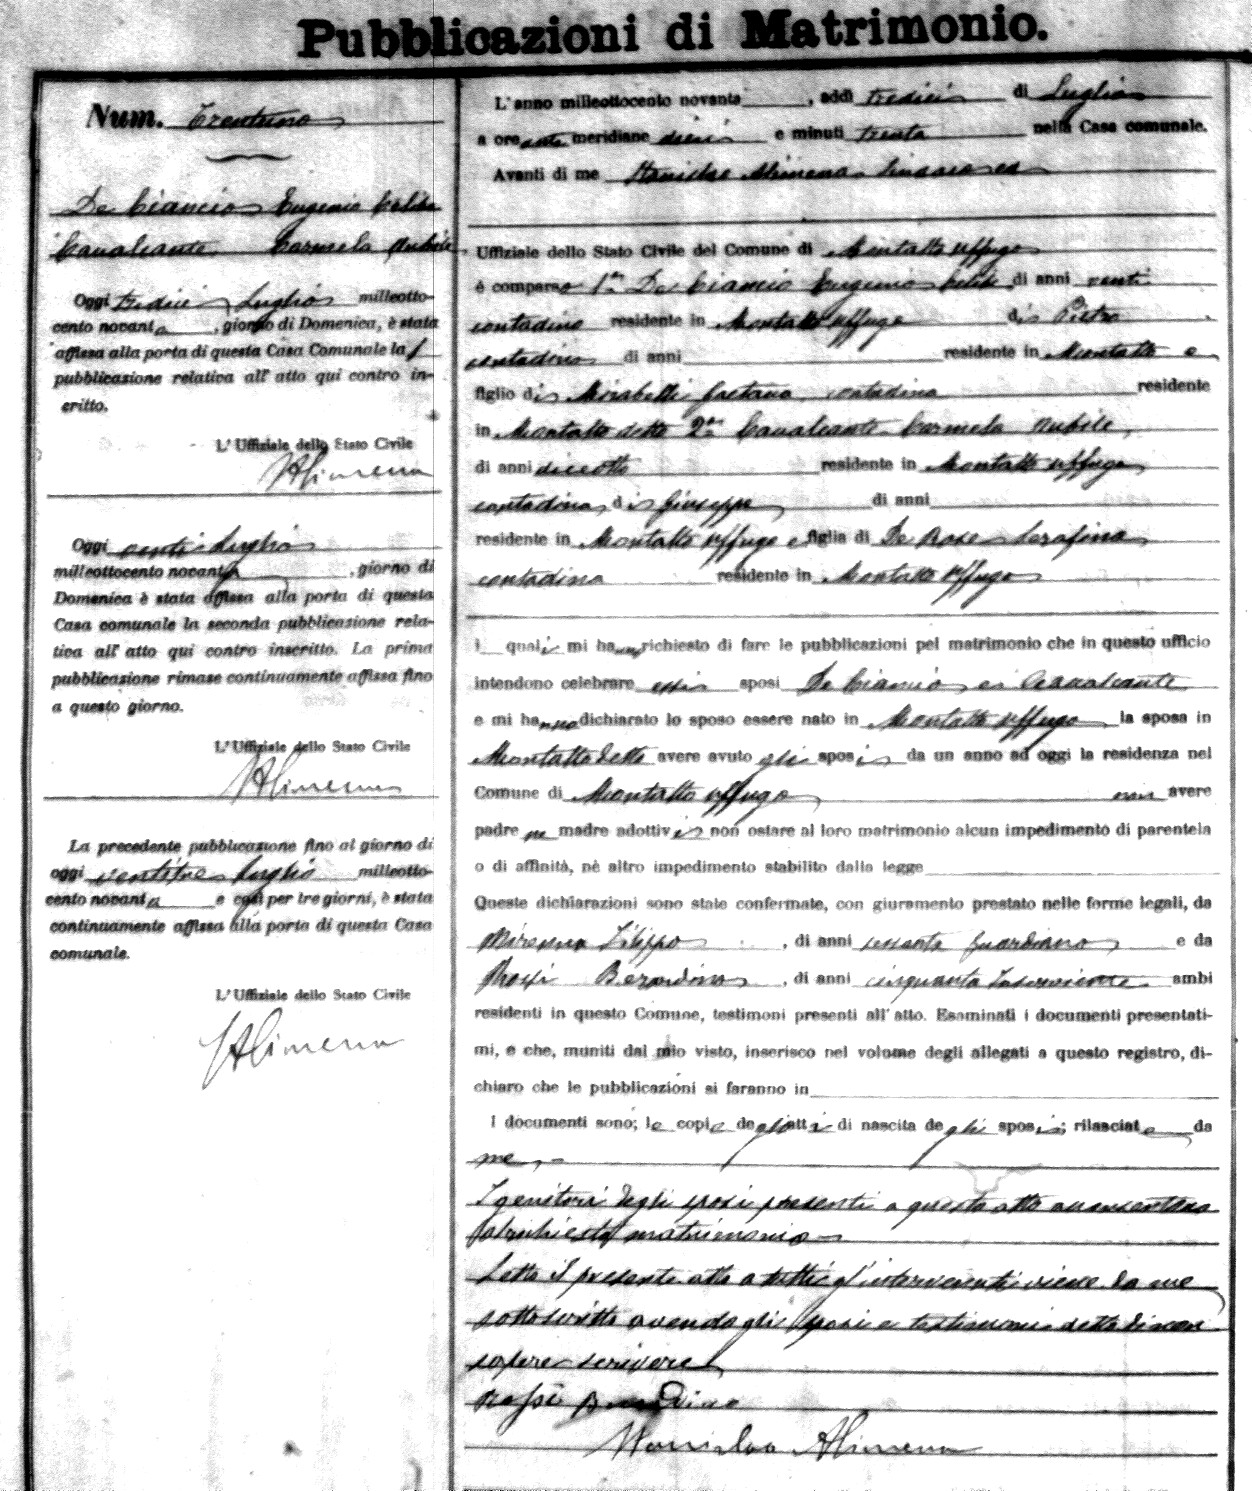 Pubblicazioni di Matrimonio.
Num. Trentuno
De Ciancio Eugenio Celibe
Cavalcante Carmela Nubile
Oggi tredici Luglio milleotto-
cento novanta , giorno di Domenica, è stata
affissa alla porta di questa Casa Comunale la 1
pubblicazione relativa all' atto qui contro in-
scritto.
L' Uffiziale dello Stato Civile
SAlimena
Oggi venti Luglio
milleottocento novanta , giorno di
Domenica è stata affissa alla porta di questa
Casa comunale la seconda pubblicazione rela-
tiva all' atto qui contro inscritto. La prima
pubblicazione rimase continuamente affissa fino
a questo giorno.
L' Uffiziale dello Stato Civile
SAlimena
La precedente pubblicazione fino al giorno di
oggi ventitre Luglio milleotto-
cento novanta e così per tre giorni, è stata
continuamente affissa alla porta di questa Casa
comunale.
L' Uffiziale dello Stato Civile
SAlimena
L' anno milleottocento novanta , addì tredici di Luglio
a ore ante meridiane dieci e minuti trenta nella Casa comunale.
Avanti di me Stanislao Alimena
Uffiziale dello Stato Civile del Comune di Montalto Uffugo
è comparso 1° De Ciancio Eugenio Celibe di anni venti
contadino residente in Montalto Uffugo di Pietro
contadino di anni residente in Montalto e
figlio di Mirabelli Gaetana contadina residente
in Montalto detto 2° Cavalcante Carmela Nubile,
di anni diciotto residente in Montalto Uffugo
contadina, di Giuseppe di anni
residente in Montalto Uffugo e figlia di De Rose Serafina
contadina residente in Montalto Uffugo
I quali mi hanno richiesto di fare le pubblicazioni pel matrimonio che in questo ufficio
intendono celebrare essi sposi De Ciancio e Cavalcante
e mi hanno dichiarato lo sposo essere nato in Montalto Uffugo la sposa in
Montalto detto avere avuto gli sposi da un anno ad oggi la residenza nel
Comune di Montalto Uffugo non avere
padre ne madre adottivi non ostare al loro matrimonio alcun impedimento di parentela
o di affinità, nè altro impedimento stabilito dalla legge
Queste dichiarazioni sono state confermate, con giuramento prestato nelle forme legali, da
Filippo , di anni sessanta guardiano e da
Rossi Berardino , di anni cinquanta Inserviente ambi
residenti in questo Comune, testimoni presenti all' atto. Esaminati i documenti presentati-
mi, e che, muniti dal mio visto, inserisco nel volume degli allegati a questo registro, di-
chiaro che le pubblicazioni si faranno in
I documenti sono; le copie degli atti di nascita degli sposi; rilasciate da
me,
I genitori degli sposi presenti a questo atto acconsentono
al richiesto matrimonio
Letto il presente atto a tutti gl'intervenuti viene da me
sottoscritto avendo gli sposi e testimoni detto di non
sapere scrivere
Rossi Berardino
Stanislao Alimena